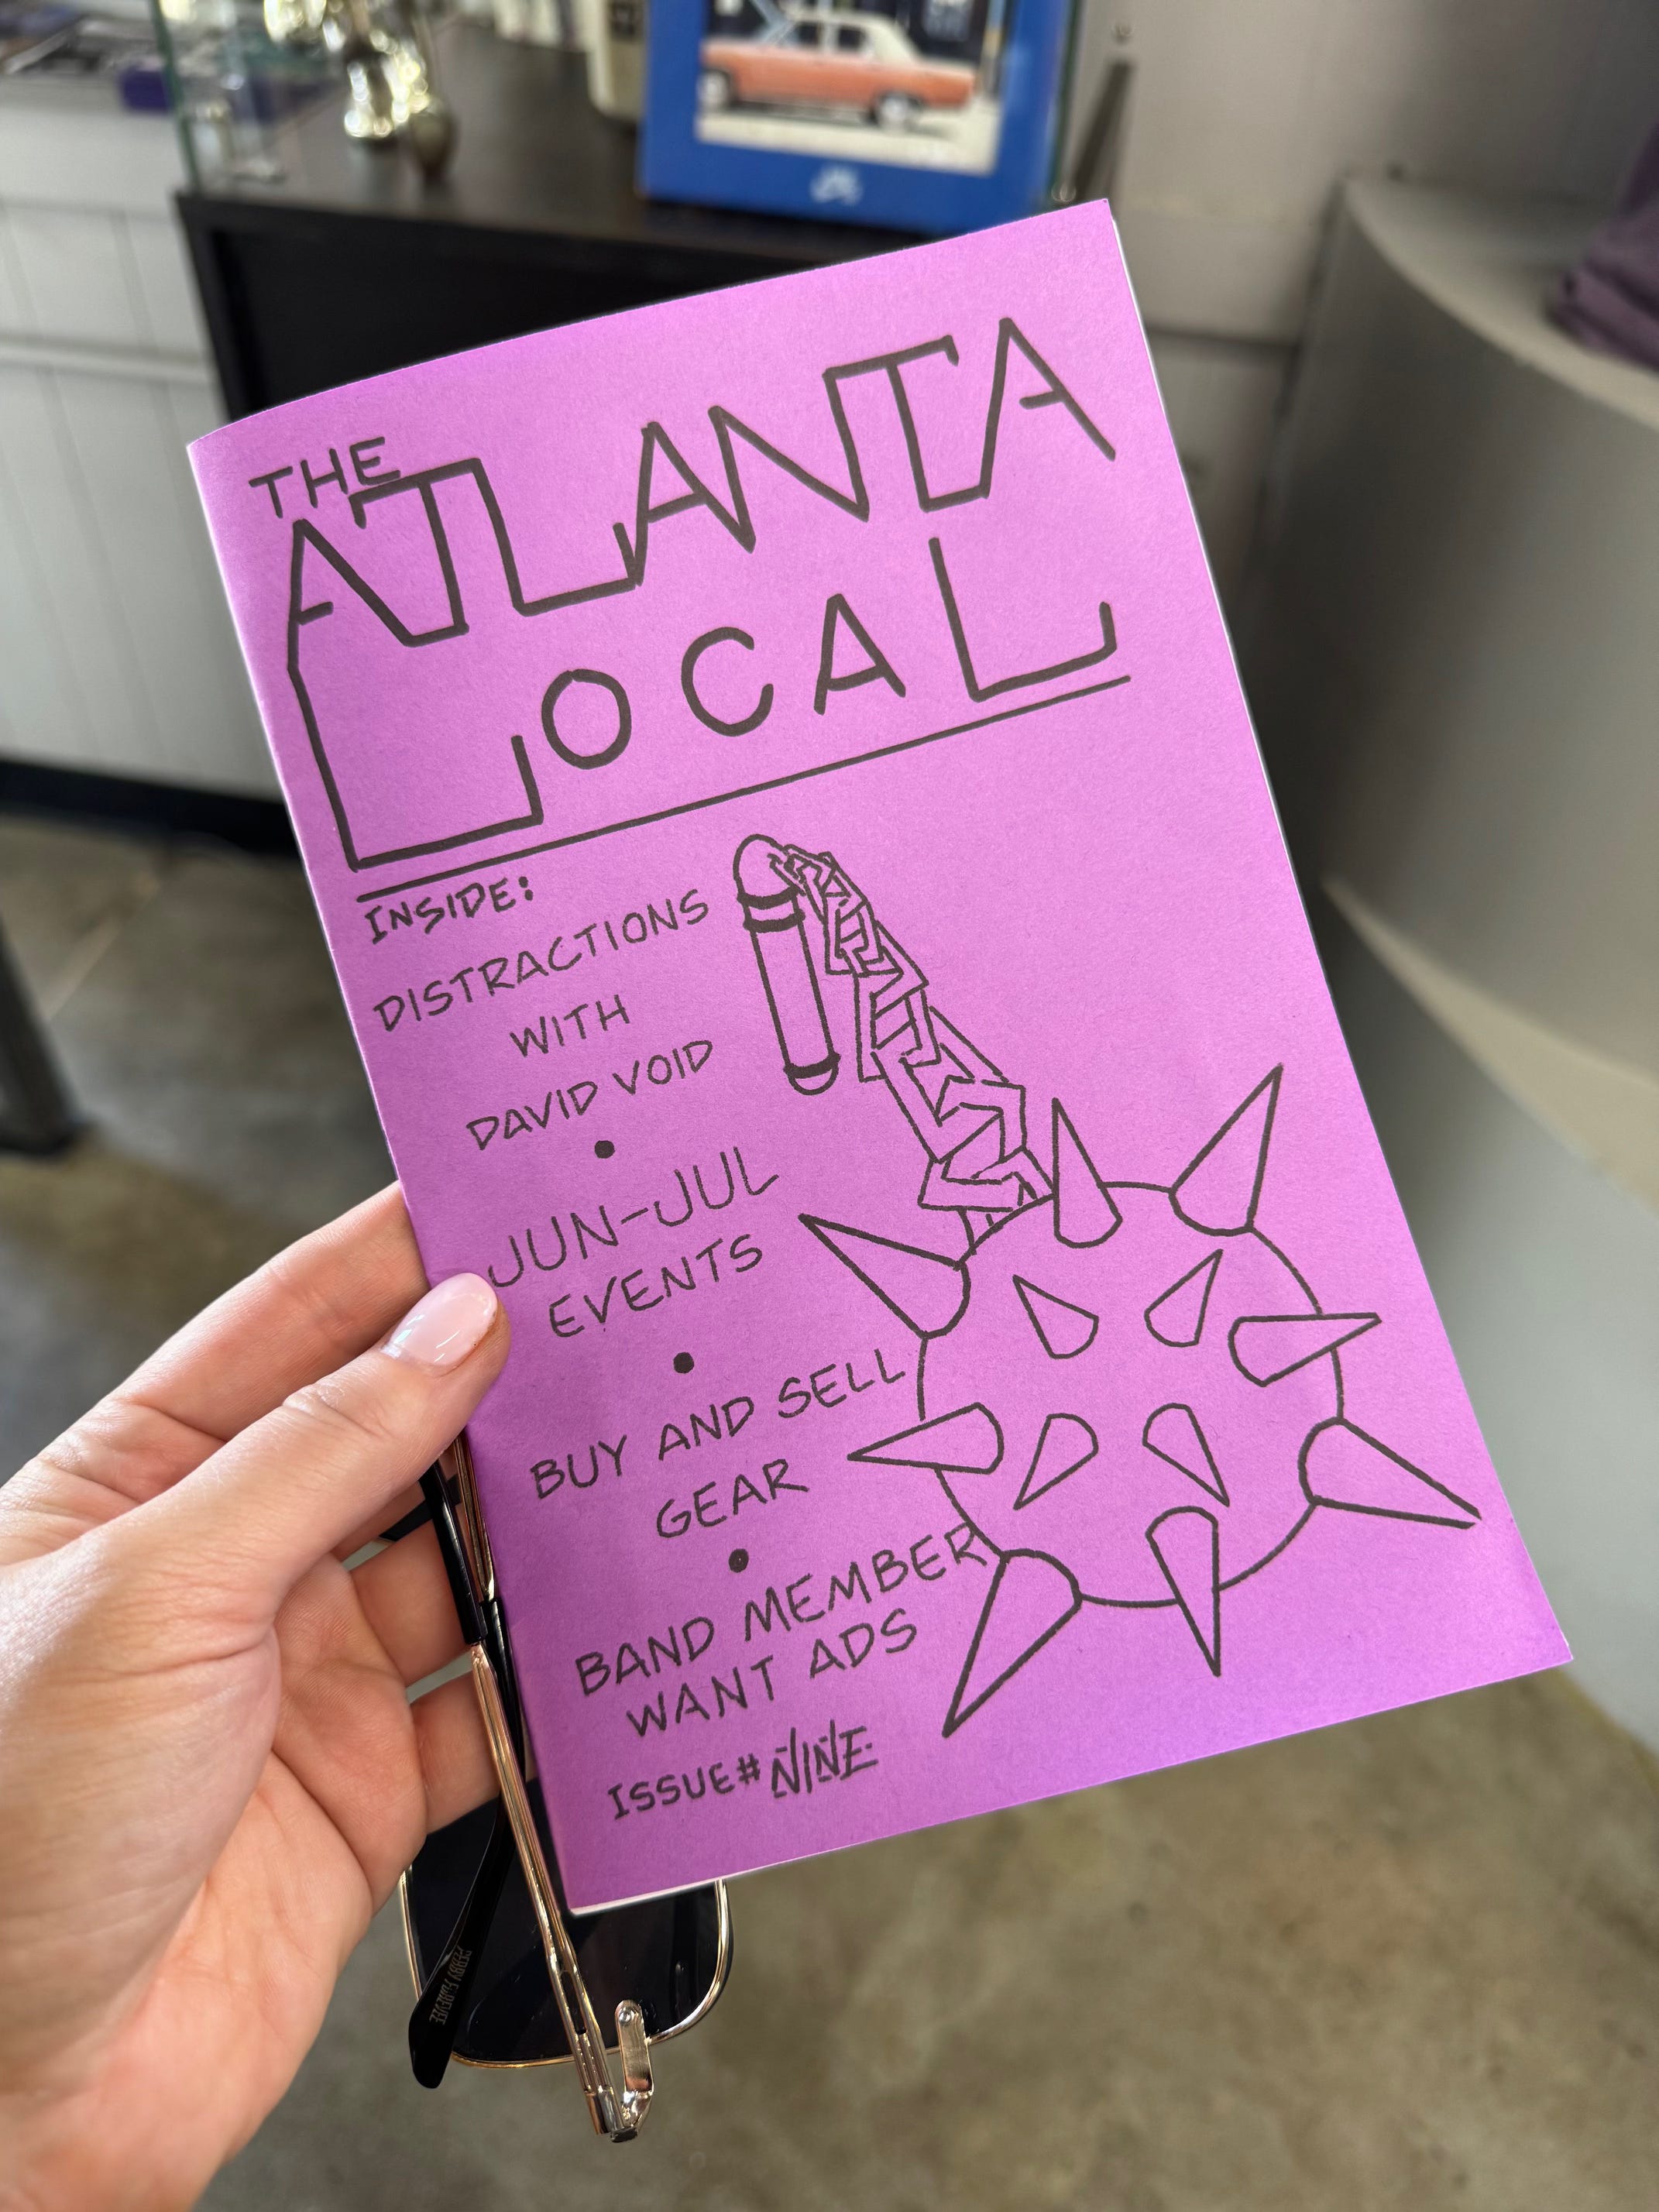 THE
ATLANTA
LOCAL
INSIDE:
DISTRACTIONS
WITH
DAVID VOID
•
JUN-JUL
EVENTS
•
BUY AND SELL
GEAR
•
BAND MEMBER
WANT ADS
ISSUE# NINE